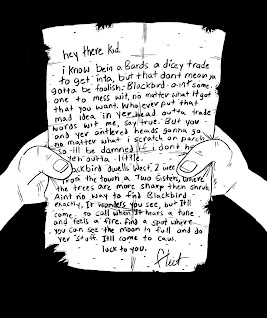 hey there Kid
i know bein a Bards a dicey trade
to get inta, but that dont mean ya
gotta be foolish. Blackbird aint some
one to mess wit, no matter what it got
that you want. Whoever put that
mad idea in yer head outta trade
words wit me, say true. But you
and yer antlered heads gonna go
no matter what i scratch on parch
so ill be damned if i dont he
ten outta little.
lackbird dwells West, 2 wee
from the town a Two Sisters, where
the trees are more sharp then shrub
Aint no way to find Blackbird
exactly. It wonders you see, but itll
come to call when it hears a tune
and feels a fire. find a spot where
you can see the moon in full and do
yer stuff. Itll come to caw.
luck to you.